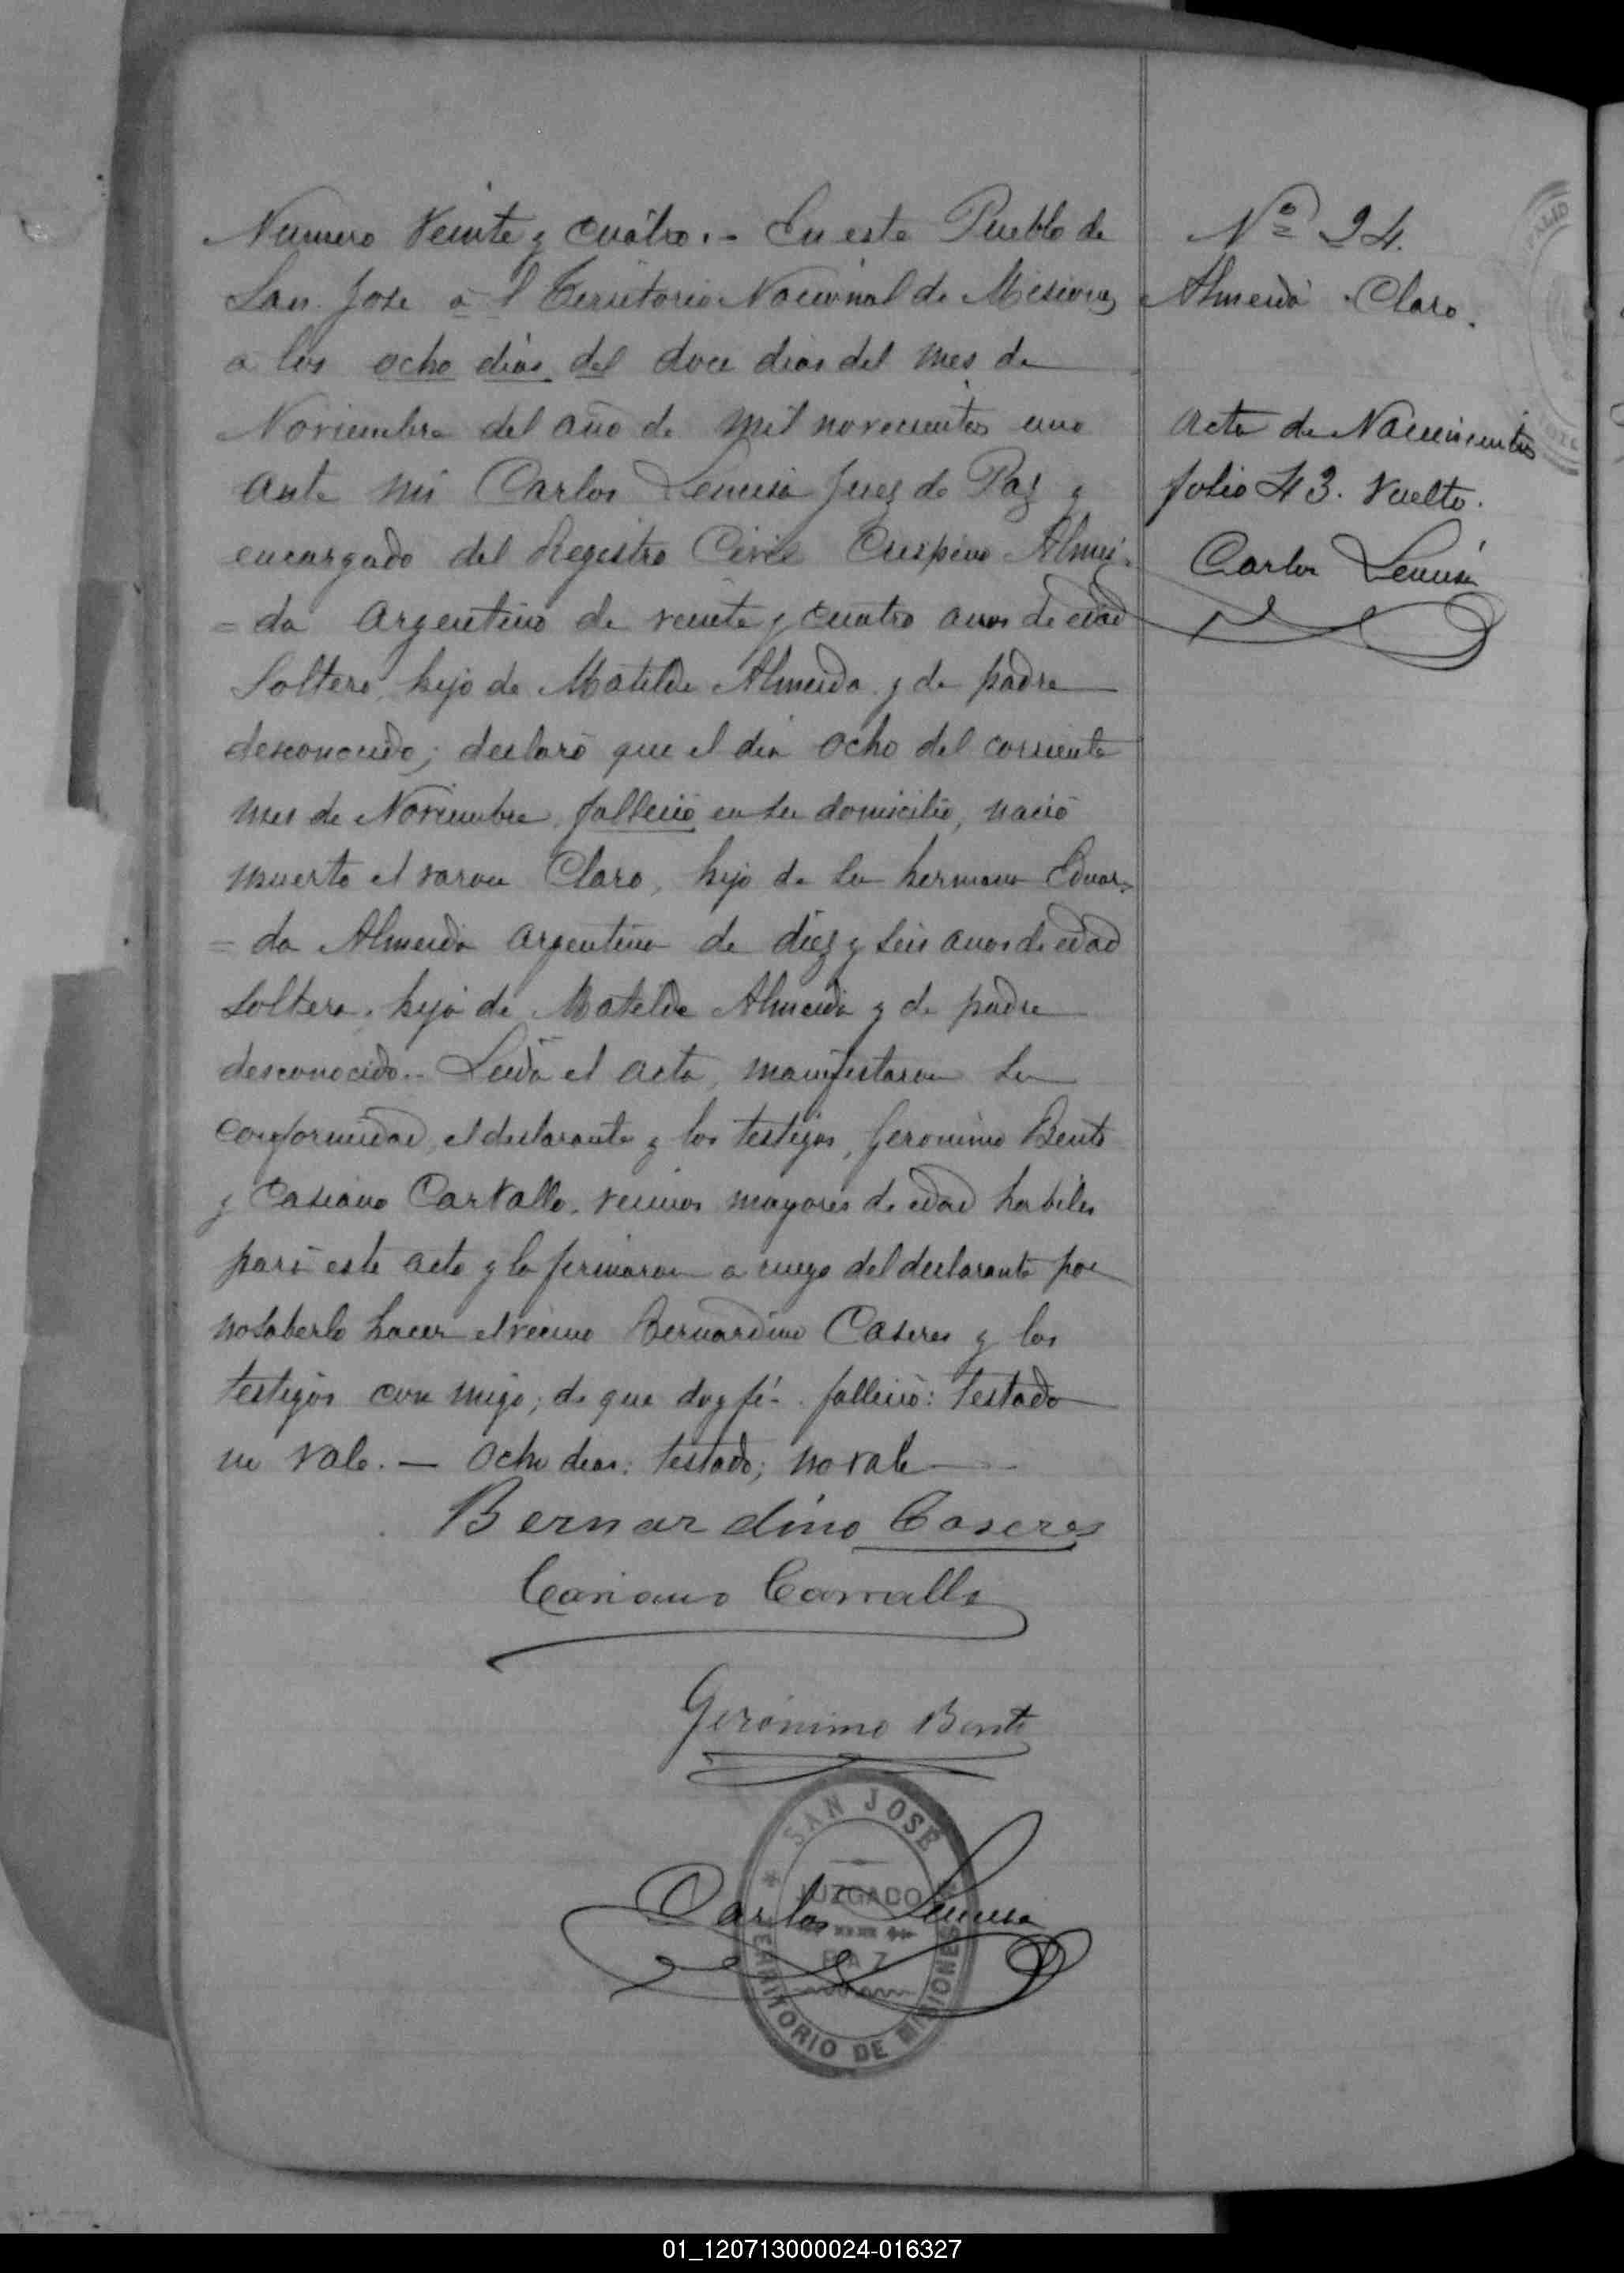 Numero Veinte y Cuatro.- En este Pueblo de
San Jose a l Territorio Nacional de Misiones
a los ocho dias del doce dias del mes de
Noviembre del año de mil novecientos uno
ante mi Carlos Juez de Paz y
encargado del Registro Civil Crispino Almei-
=da Argentino de veinte y cuatro anos de edad
Soltero, hijo de Matilde Almeida y de padre
desconocido; declaró que el dia ocho del corriente
mes de Noviembre falleció en su domicilio, nació
muerto el varon Claro, hijo de su hermana Eduar-
=da Almeida argentina de diez y seis anos de edad
Soltera, hija de Matilde Almeida y de padre
desconocido.- Leida el acta, manifestaron su
conformidad, el declarante y los testigos, Jeronimo Bento
y Casiano Carvallo, vecinos mayores de edad habiles
para este acto y la firmaron a ruego del declarante por
no saberlo hacer el vecino Bernardino Caseres y los
testigos con migo; de que doy fé. falleció: testado
no vale. — Ocho dias: testado; no vale
Bernardino Caseres
Casiano Carvallo
Gerónimo Bento
Carlos
SAN JOSÉ
JUZGADO
PAZ
TERRITORIO DE MISIONES
Nº 24.
Almeida Claro.
Acta de Nacimientos
folio 43. Vuelto.
Carlos
01_120713000024-016327